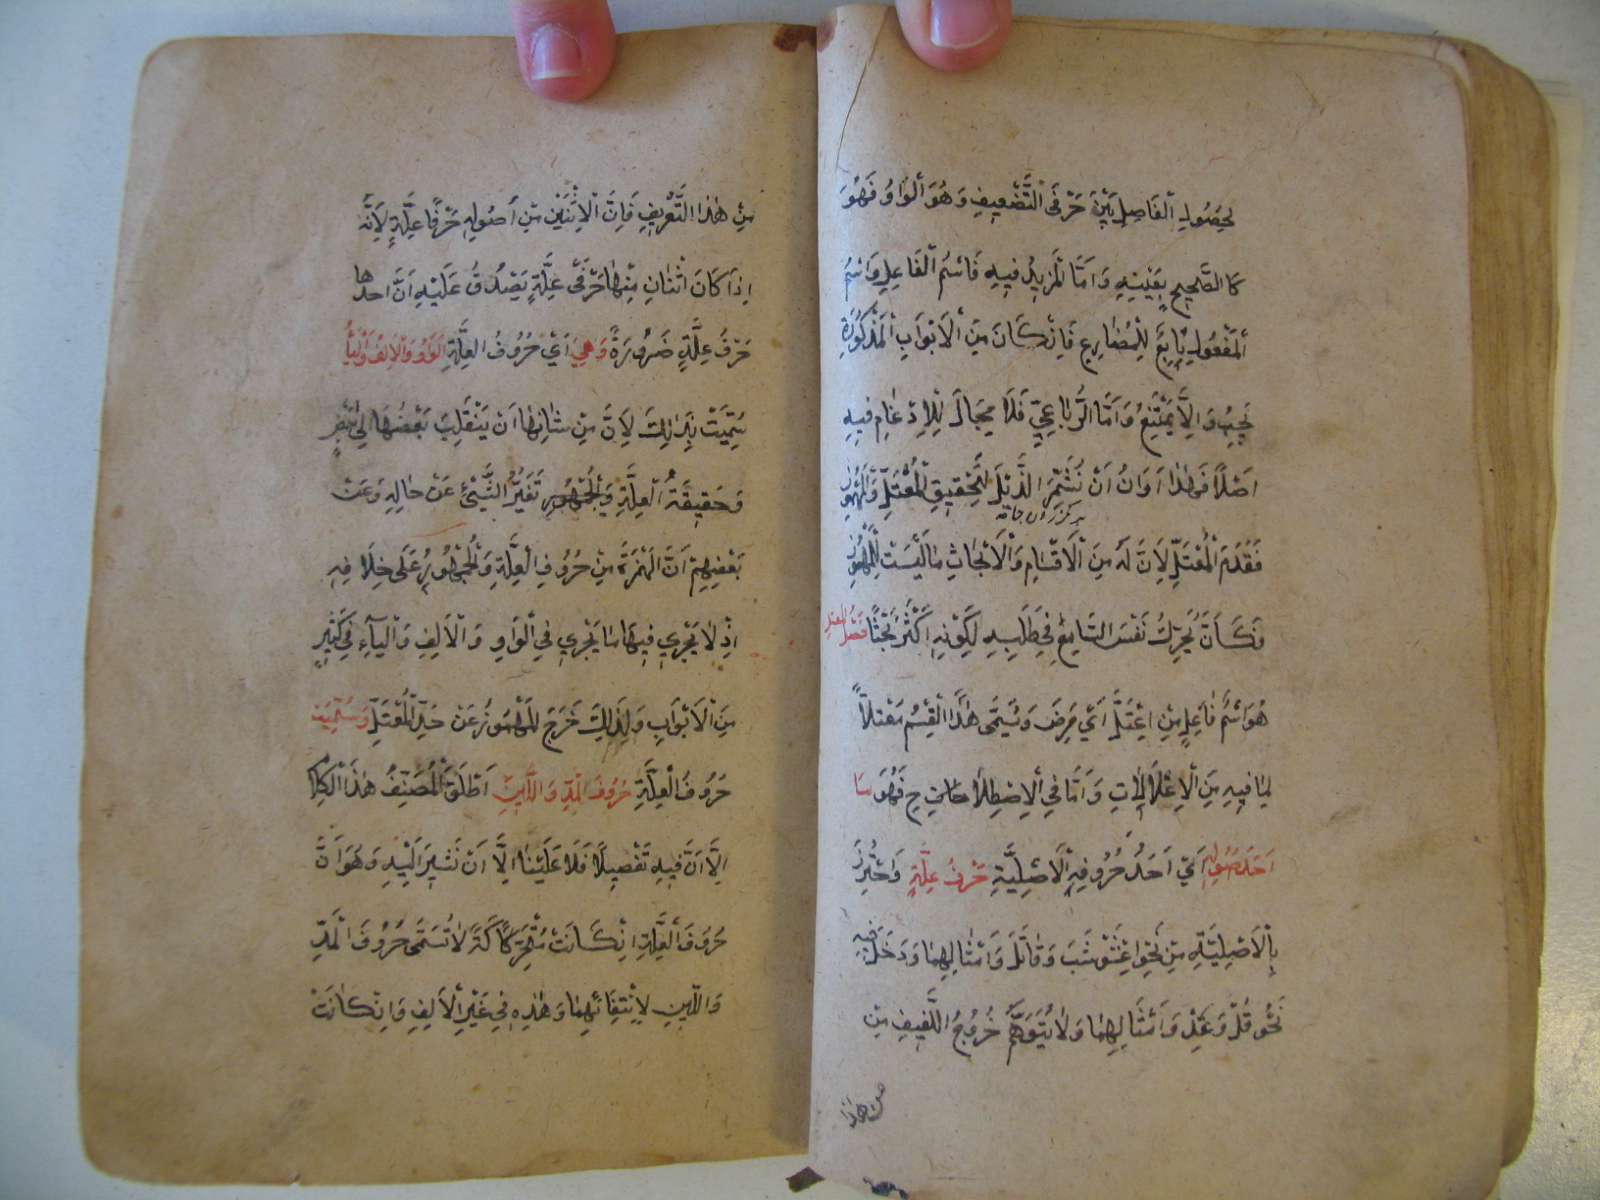 لِحُصُولِ الْفَاصِلِ بَيْنَ حَرْفَيِ التَّضْعِيفِ وَهُوَ الْوَاوُ فَهُوَ
كَالصَّحِيحِ بِعَيْنِهِ وَاَمَّا الْمَزِيدُ فِيهِ فَاسْمُ الْفَاعِلِ وَاسْمُ
الْمَفْعُولِ تَابِعٌ لِلْمُضَارِعِ فَاِنْ كَانَ مِنَ الْاَبْوَابِ الْمَذْكُورَةِ
يَجِبُ وَاِلَّا يَمْتَنِعُ وَاَمَّا الرُّبَاعِيُّ فَلَا مَجَالَ لِلْاِدْغَامِ فِيهِ
اَصْلًا فَهٰذَا اَوَانُ اَنْ نُشَمِّرَ الذَّيْلَ لِتَحْقِيقِ الْمُعْتَلِّ وَالْمَهْمُوزِ
فَقَدَّمَ الْمُعْتَلَّ لِاَنَّ لَهُ مِنَ الْاَقْسَامِ وَالْاَبْحَاثِ مَا لَيْسَتْ لِلْمَهْمُوزِ
فَكَاَنَّ يُحَرِّكُ نَفْسَ السَّامِعِ فِي طَلَبِهِ لِكَوْنِهِ اَكْثَرَ بَحْثًا فَصْلُ المعتل
هُوَ اسْمُ فَاعِلٍ مِنْ اِعْتَلَّ اَيْ مَرِضَ وَيُسَمّٰى هٰذَا الْقِسْمُ مُعْتَلًّا
لِمَا فِيهِ مِنَ الْاِعْلَالَاتِ وَاَمَّا فِي الْاِصْطِلَاحِ فَهُوَ مَا
اَحَدُ اُصُولِهِ اَيْ اَحَدُ حُرُوفِهِ الْاَصْلِيَّةِ حَرْفُ عِلَّةٍ وَاحْتُرِزَ
بِالْاَصْلِيَّةِ مِنْ نَحْوِ اعْشَوْشَبَ وَقَاتَلَ وَاَمْثَالِهِمَا وَدَخَلَ فيه
نَحْوُ قُلْ وَعِدْ وَاَمْثَالِهِمَا وَلَا يُتَوَهَّمُ خُرُوجُ اللَّفِيفِ مِنْ
من هذا
مِنْ هٰذَا التَّعْرِيفِ فَاِنَّ الْاِثْنَيْنِ مِنْ اُصُولِهِ حَرْفَا عِلَّةٍ لِاَنَّهُ
اِذَا كَانَ اثْنَانِ مِنْهَا حَرْفَيْ عِلَّةٍ يَصْدُقُ عَلَيْهِ اَنَّ احدها
حَرْفُ عِلَّةٍ ضَرُورَةً وَهِيَ اَيْ حُرُوفُ الْعِلَّةِ اَلْوَاوُ وَالْاَلِفُ وَالْيَاءُ
سُمِّيَتْ بِذٰلِكَ لِاَنَّ مِنْ شَاْنِهَا اَنْ يَنْقَلِبَ بَعْضُهَا اِلٰى بَعْضٍ
وَحَقِيقَةُ الْعِلَّةِ تَغَيُّرُ الشَّيْئِ عَنْ حَالِهِ وَعَنْ
بَعْضِهِمْ اَنَّ الْهَمْزَةَ مِنْ حُرُوفِ الْعِلَّةِ وَالْجُمْهُورُ عَلٰى خِلَافِهِ
اِذْ لَا يَجْرِي فِيهَا مَا يَجْرِي فِي الْوَاوِ وَالْاَلِفِ وَالْيَاءِ فِي كَثِيرٍ
مِنَ الْاَبْوَابِ وَلِذٰلِكَ خَرَجَ الْمَهْمُوزُ عَنْ حَدِّ الْمُعْتَلِّ وَسُمِّيَتْ
حُرُوفُ الْعِلَّةِ حُرُوفَ الْمَدِّ وَاللِّينِ اَطْلَقَ الْمُصَنِّفُ هٰذَا الْكَلَا
اِلَّا اَنَّ فِيهِ تَفْصِيلًا فَلَا عَلَيْنَا اِلَّا اَنْ نُشِيرَ اِلَيْهِ وَهُوَ اَنَّ
حُرُوفَ الْعِلَّةِ اِنْ كَانَتْ مُتَحَرِّكَةً لَا تُسَمّٰى حُرُوفَ الْمَدِّ
وَاللِّينِ لِاِنْتِفَائِهِمَا وَهٰذِهِ فِي غَيْرِ الْاَلِفِ وَاِنْ كَانَتْ